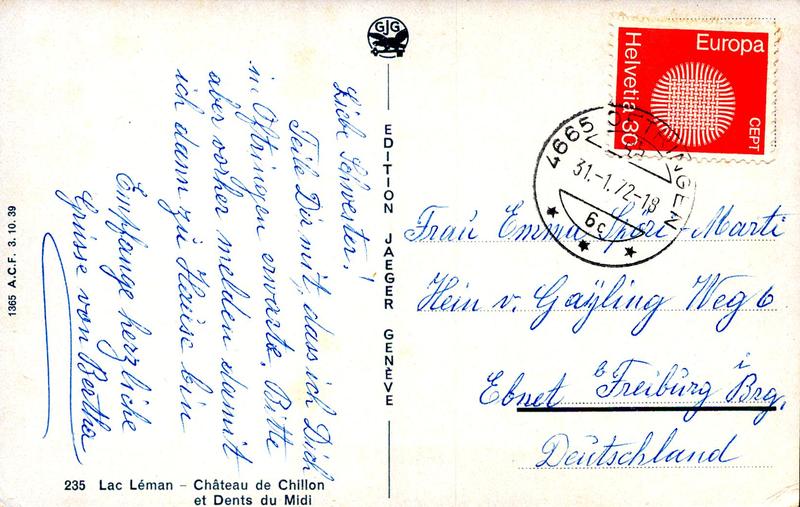 GJG
Liebe Schwester!
Teile Dir mit, dass ich Dich
in Oftringen erwarte. Bitte
aber vorher melden damit
ich dann zu Hause bin
Empfange herzliche
Grüsse von Bertha
1365 A.C.F. 3. 10. 39
235 Lac Léman – Château de Chillon
et Dents du Midi
EDITION JAEGER GENÈVE
Europa
Helvetia 30
CEPT
4665 OFTRINGEN
31.-1.72-18
6c
Frau Emma Spöri-Marti
Hein v. Gayling Weg 6
Ebnet b Freiburg i Brg.
Deutschland